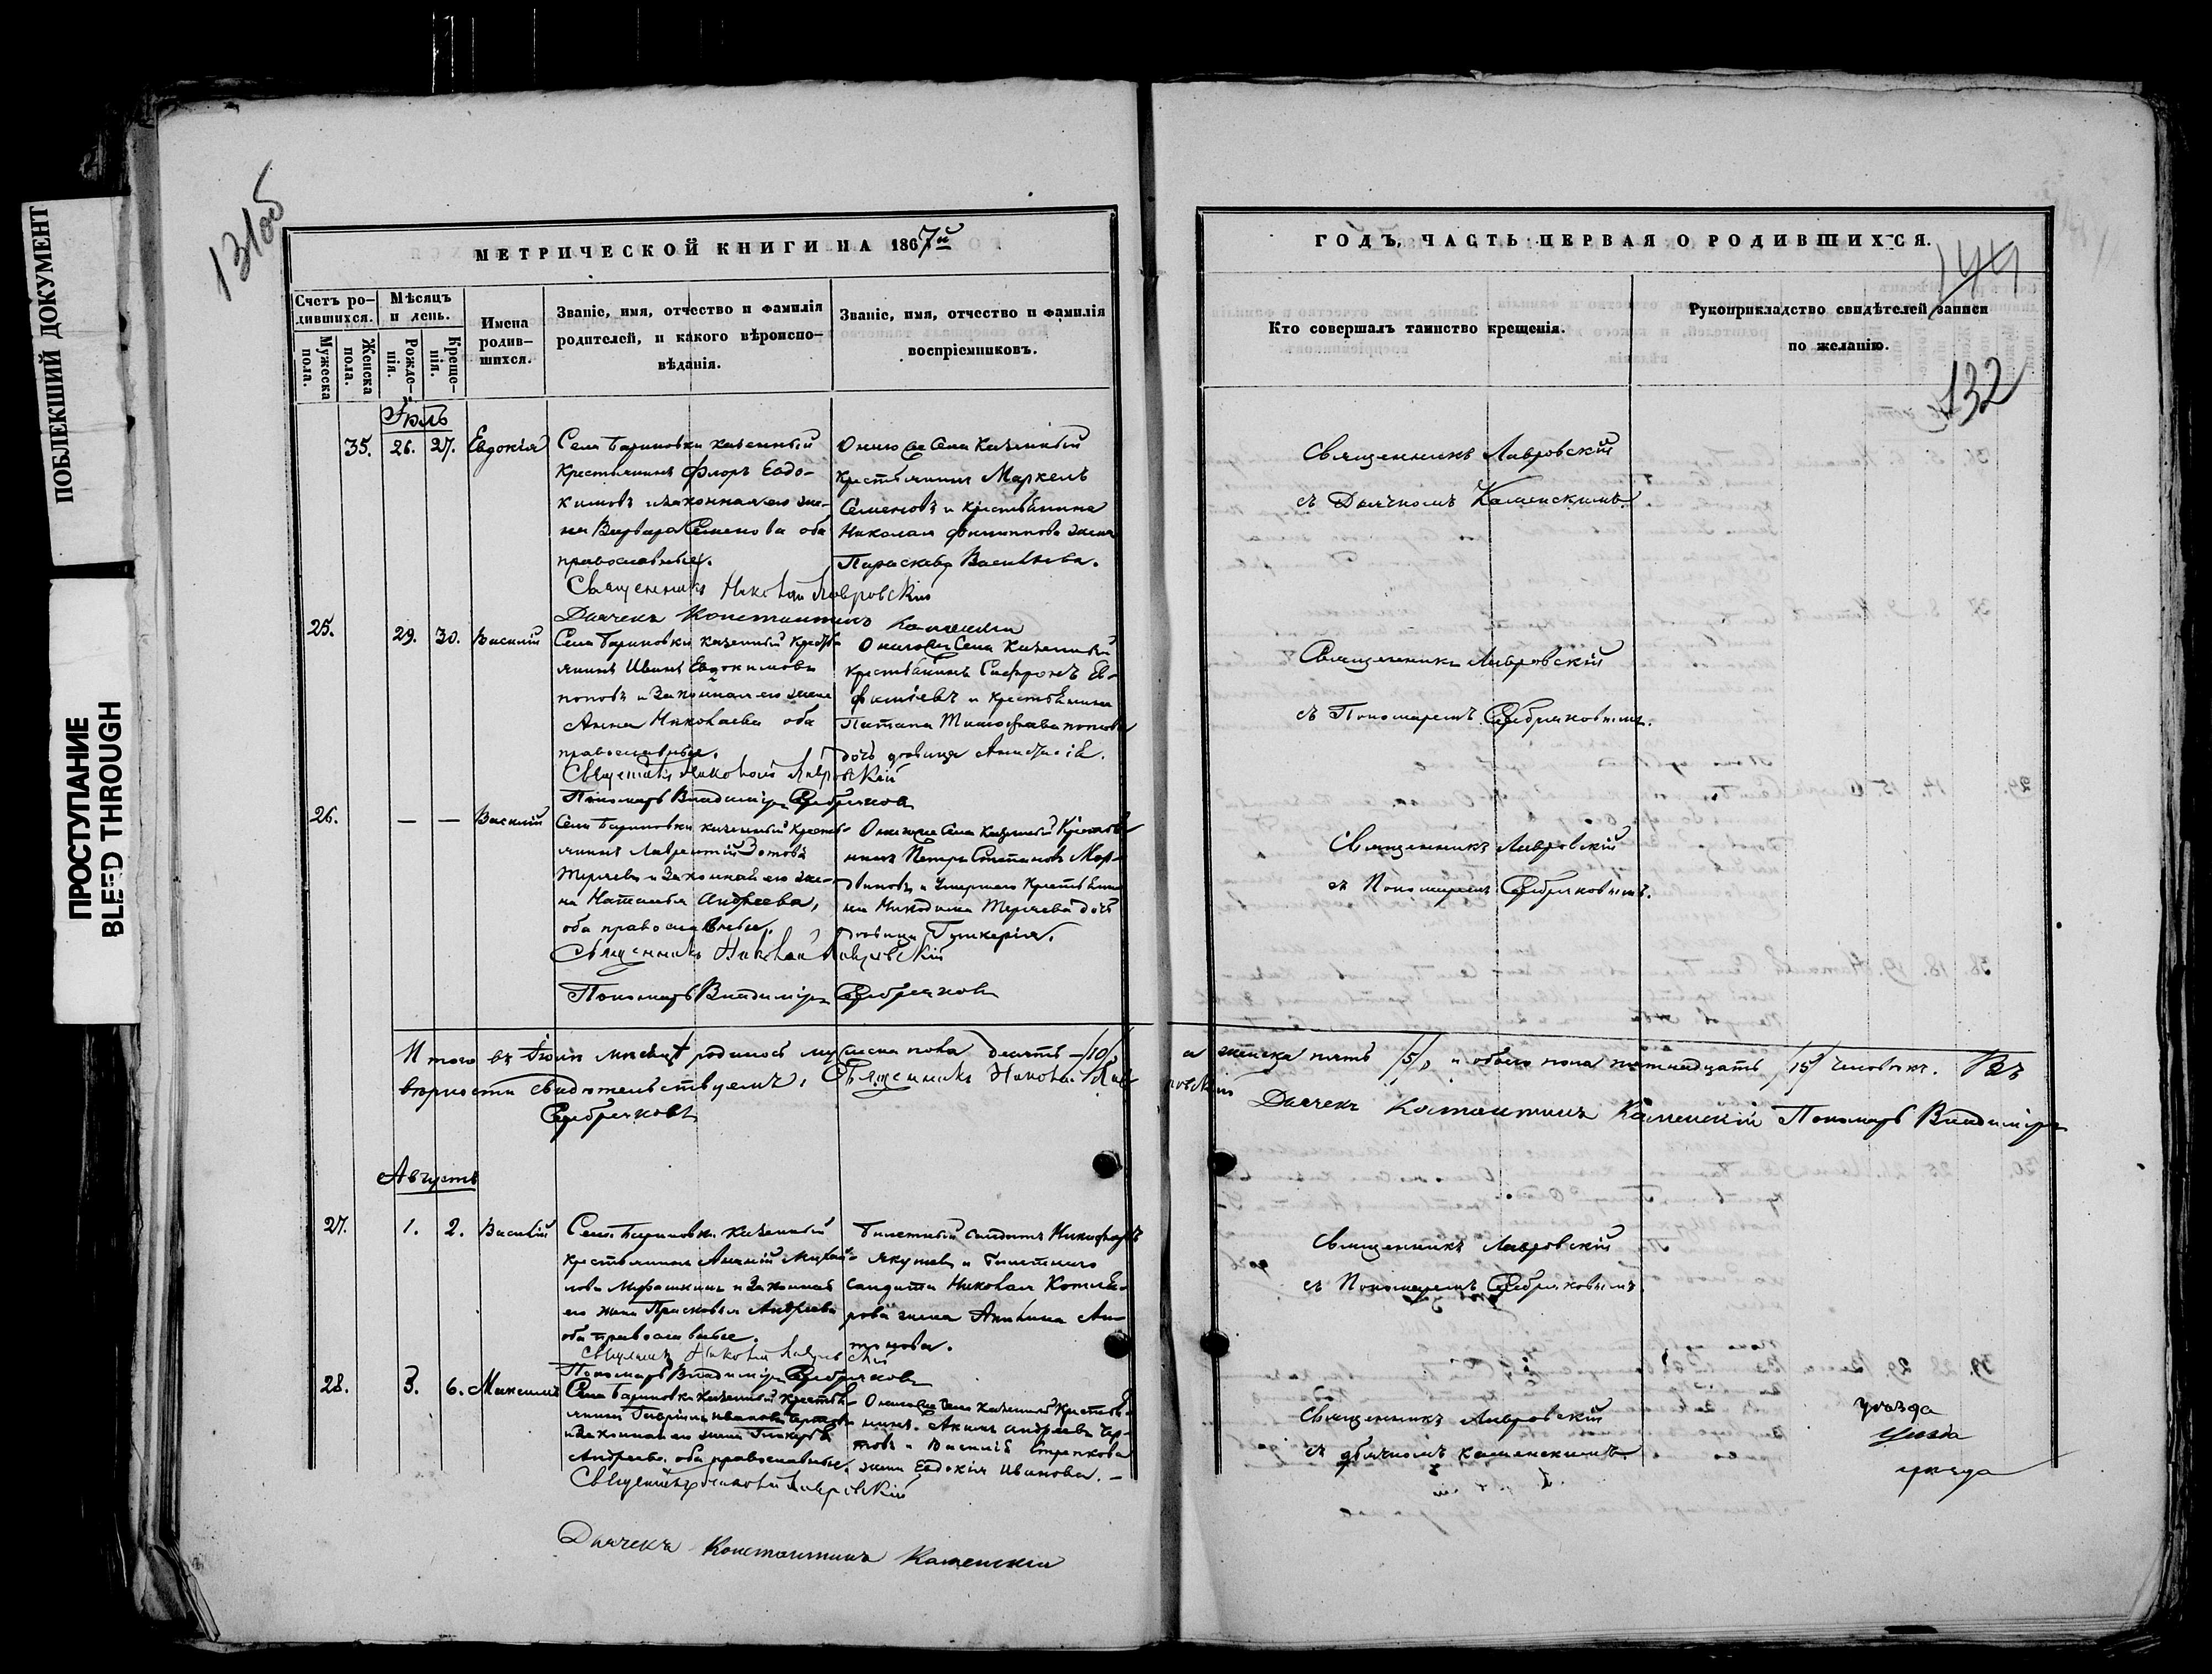 ПОБЛЕКШИЙ ДОКУМЕНТ
ПРОСТУПАНИЕ
BLEED THROUGH
131об
МЕТРИЧЕСКОЙ КНИГИ НА 1867й
Счетъ ро-
дившихся.
Мужеска
пола.
Женска
пола.
Мѣсяцъ
и день.
Рожде-
нія.
Креще-
нія.
Имена
родив-
шихся.
Званіе, имя, отчество и фамилія
родителей, и какого вѣроиспо-
вѣданія.
Званіе, имя, отчество и фамилія
воспріемниковъ.
Іюль
35. 26. 27. Евдокія
Села Бариновки казенный
крестьянинъ Флоръ Евдо-
кимовъ и законная его же-
на Варвара Семенова оба
православные.
Онаго же Села Казенный
крестьянинъ Маркелъ
Семеновъ и крестьянина
Николая Филиппова жена
Параскева Васильева.
Священникъ Николай Лавровскій
Дьячекъ Константинъ Каменскій
25. 29. 30. Василій
Села Бариновки казенный кресть-
янинъ Иванъ Евдокимовъ
поповъ и Законная его жена
Анна Николаева оба
православные.
Онаго же Села Казенный
крестьянинъ Сафронъ Ев-
фимовъ и крестьянина
Потапа Тимофеева попова
дочь девица Анастасія.
Священникъ Николай Лавровскій
Пономарь Владиміръ Серебряковъ
26. — — Василій
Села Бариновки казенный кресть-
янинъ Лаврентій Зотовъ
Теряевъ и Законная его же-
на Наталья Андреева,
оба православные.
Онаго же Села Казенный Крестья-
нинъ Петръ Степановъ Мор-
двиновъ и умершаго Крестьяни-
на Никодима Теряева дочь
девица Гликерія.
Священникъ Николай Лавровскій
Пономарь Владиміръ Серебряковъ
Итого въ Іюлѣ мѣсяцѣ родилось мужеска пола десять /10/
вѣрности свидѣтельствуемъ: Священникъ Николай Лав-
Серебряковъ
Августъ
27. 1. 2. Василій
Села Бариновки казенный
крестьянинъ Ананій Михай-
ловъ Мурашкинъ и Законная
его жена Прасковья Андреева
оба православные.
Билетный солдатъ Никифоръ
Якушевъ и Билетнаго
Солдата Николая
жена Акилина Ан-
тонова.
Священникъ Николай Лавровскій
Пономарь Владиміръ Серебряковъ
28. 3. 6. Максимъ
Села Бариновки казенный крестья-
нинъ Гавріилъ Ивановъ
и Законная его жена Гликерья
Андреева оба православные.
Онаго же Села казенный Крестья-
нинъ Акимъ Андреевъ Чер-
товъ и Василія Стрелкова
жена Евдокія Иванова.
Священникъ Николай Лавровскій
Дьячекъ Константинъ Каменскій
ГОДЪ, ЧАСТЬ ПЕРВАЯ О РОДИВШИХСЯ.
144
Кто совершалъ таинство крещенія.
Рукоприкладство свидѣтелей записи
по желанію.
132
Священникъ Лавровскій
съ Дьячкомъ Каменскимъ.
Священникъ Лавровскій
съ Пономаремъ Серебряковымъ.
Священникъ Лавровскій
съ Пономаремъ Серебряковымъ.
а женска пять /5/, и обоего пола пятнадцать /15/ человѣкъ. Въ
ровскій
Дьячекъ Константинъ Каменскій Пономарь Владиміръ
Священникъ Лавровскій
съ Пономаремъ Серебряковымъ.
Священникъ Лавровскій
съ дьячкомъ Каменскимъ.
уезда
уезда